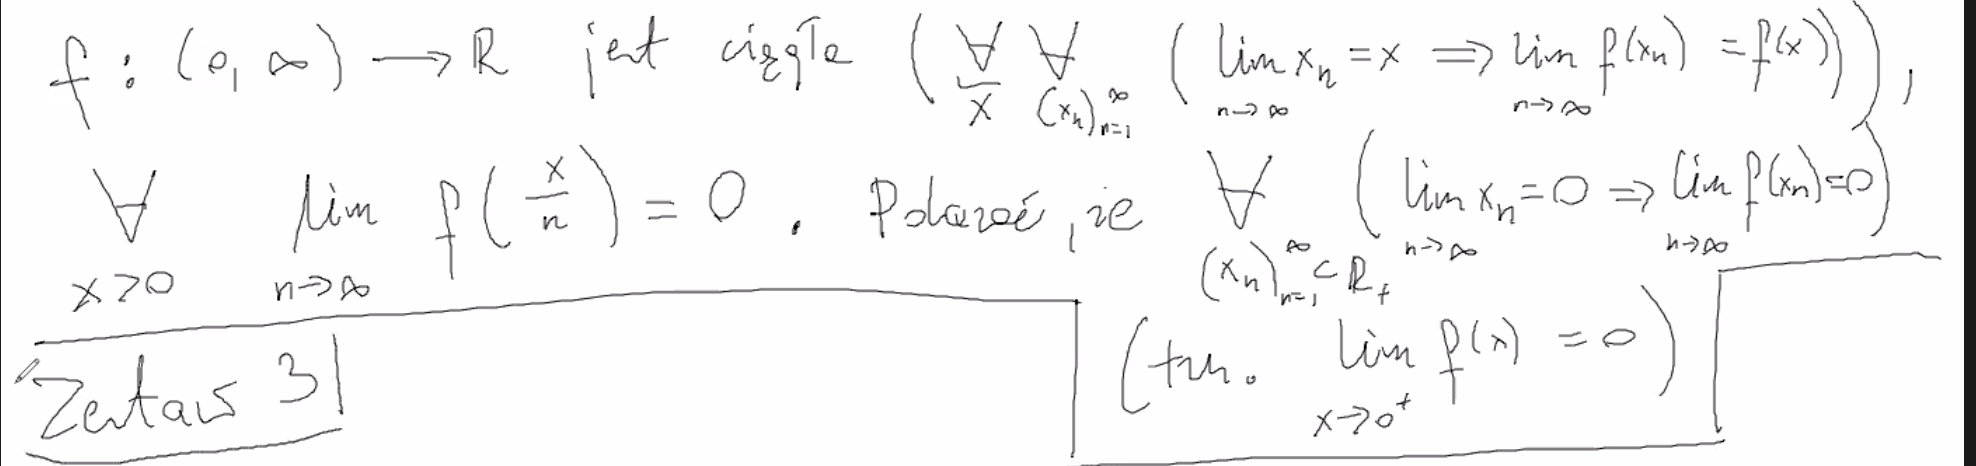 f : (0, ∞) → R jest ciągła (∀ x ∀ (xₙ)ₙ₌₁^∞ (lim n→∞ xₙ = x ⟹ lim n→∞ f(xₙ) = f(x))),
∀ x>0 lim n→∞ f(x/n) = 0. Pokazać, że ∀ (xₙ)ₙ₌₁^∞ ⊂ R₊ (lim n→∞ xₙ = 0 ⟹ lim n→∞ f(xₙ) = 0)
(tzn. lim x→0⁺ f(x) = 0)
Zestaw 3